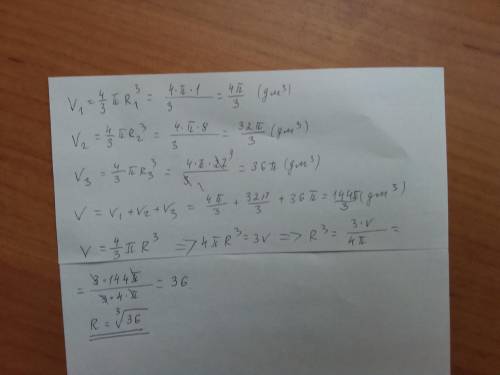 V₁ = 4/3 π R₁³ = 4·π·1/3 = 4π/3 (дм³)
V₂ = 4/3 π R₂³ = 4·π·8/3 = 32π/3 (дм³)
V₃ = 4/3 π R₃³ = 4·π·27⁹/3₁ = 36π (дм³)
V = V₁ + V₂ + V₃ = 4π/3 + 32π/3 + 36π = 144π/3 (дм³)
V = 4/3 π R³ => 4πR³ = 3V => R³ = 3·V/4π =
= 3·144π/3·4·π = 36
R = ³√36